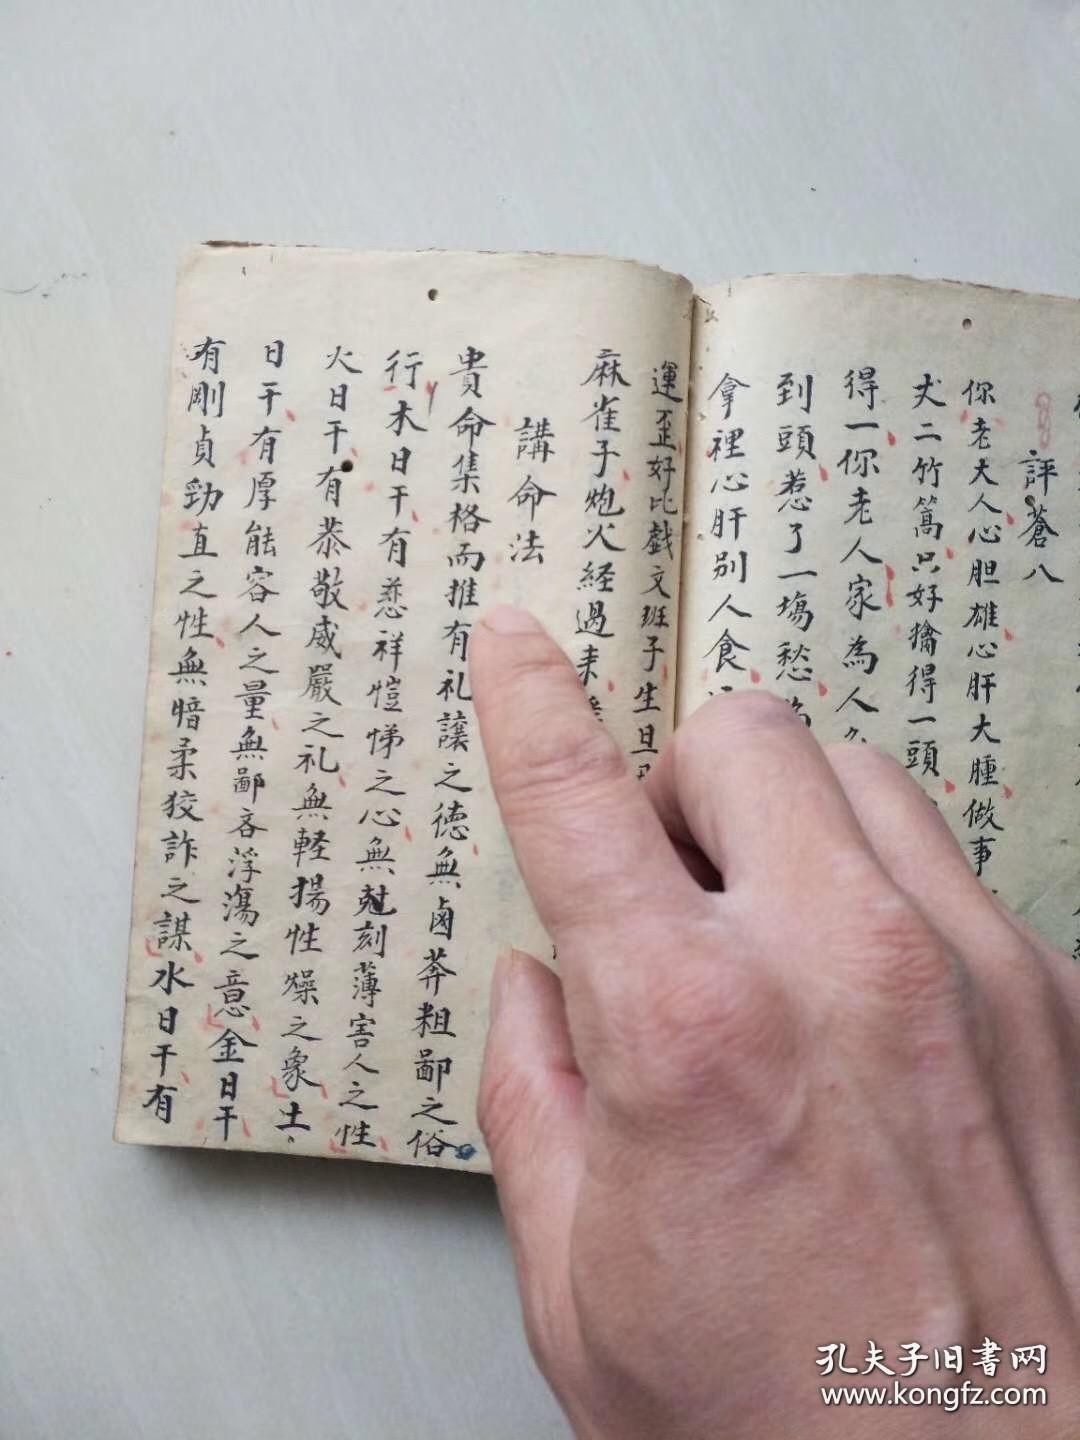 評蒼八
你老大人心胆雄心肝大腫做事
丈二竹篙只好擒得一頭
得一你老人家為人
到頭惹了一塲愁
拿裡心肝別人食
運歪好比戯文班子生旦
麻雀子炮火経過来
講命法
貴命集格而推有礼讓之徳無鹵莽粗鄙之俗
行木日干有慈祥愷悌之心無尅刻薄害人之性
火日干有恭敬威嚴之礼無輕揚性燥之象土
日干有厚能容人之量無鄙吝浮蕩之意金日干
有剛貞勁直之性無暗柔狡詐之謀水日干有
孔夫子旧書网
www.kongfz.com